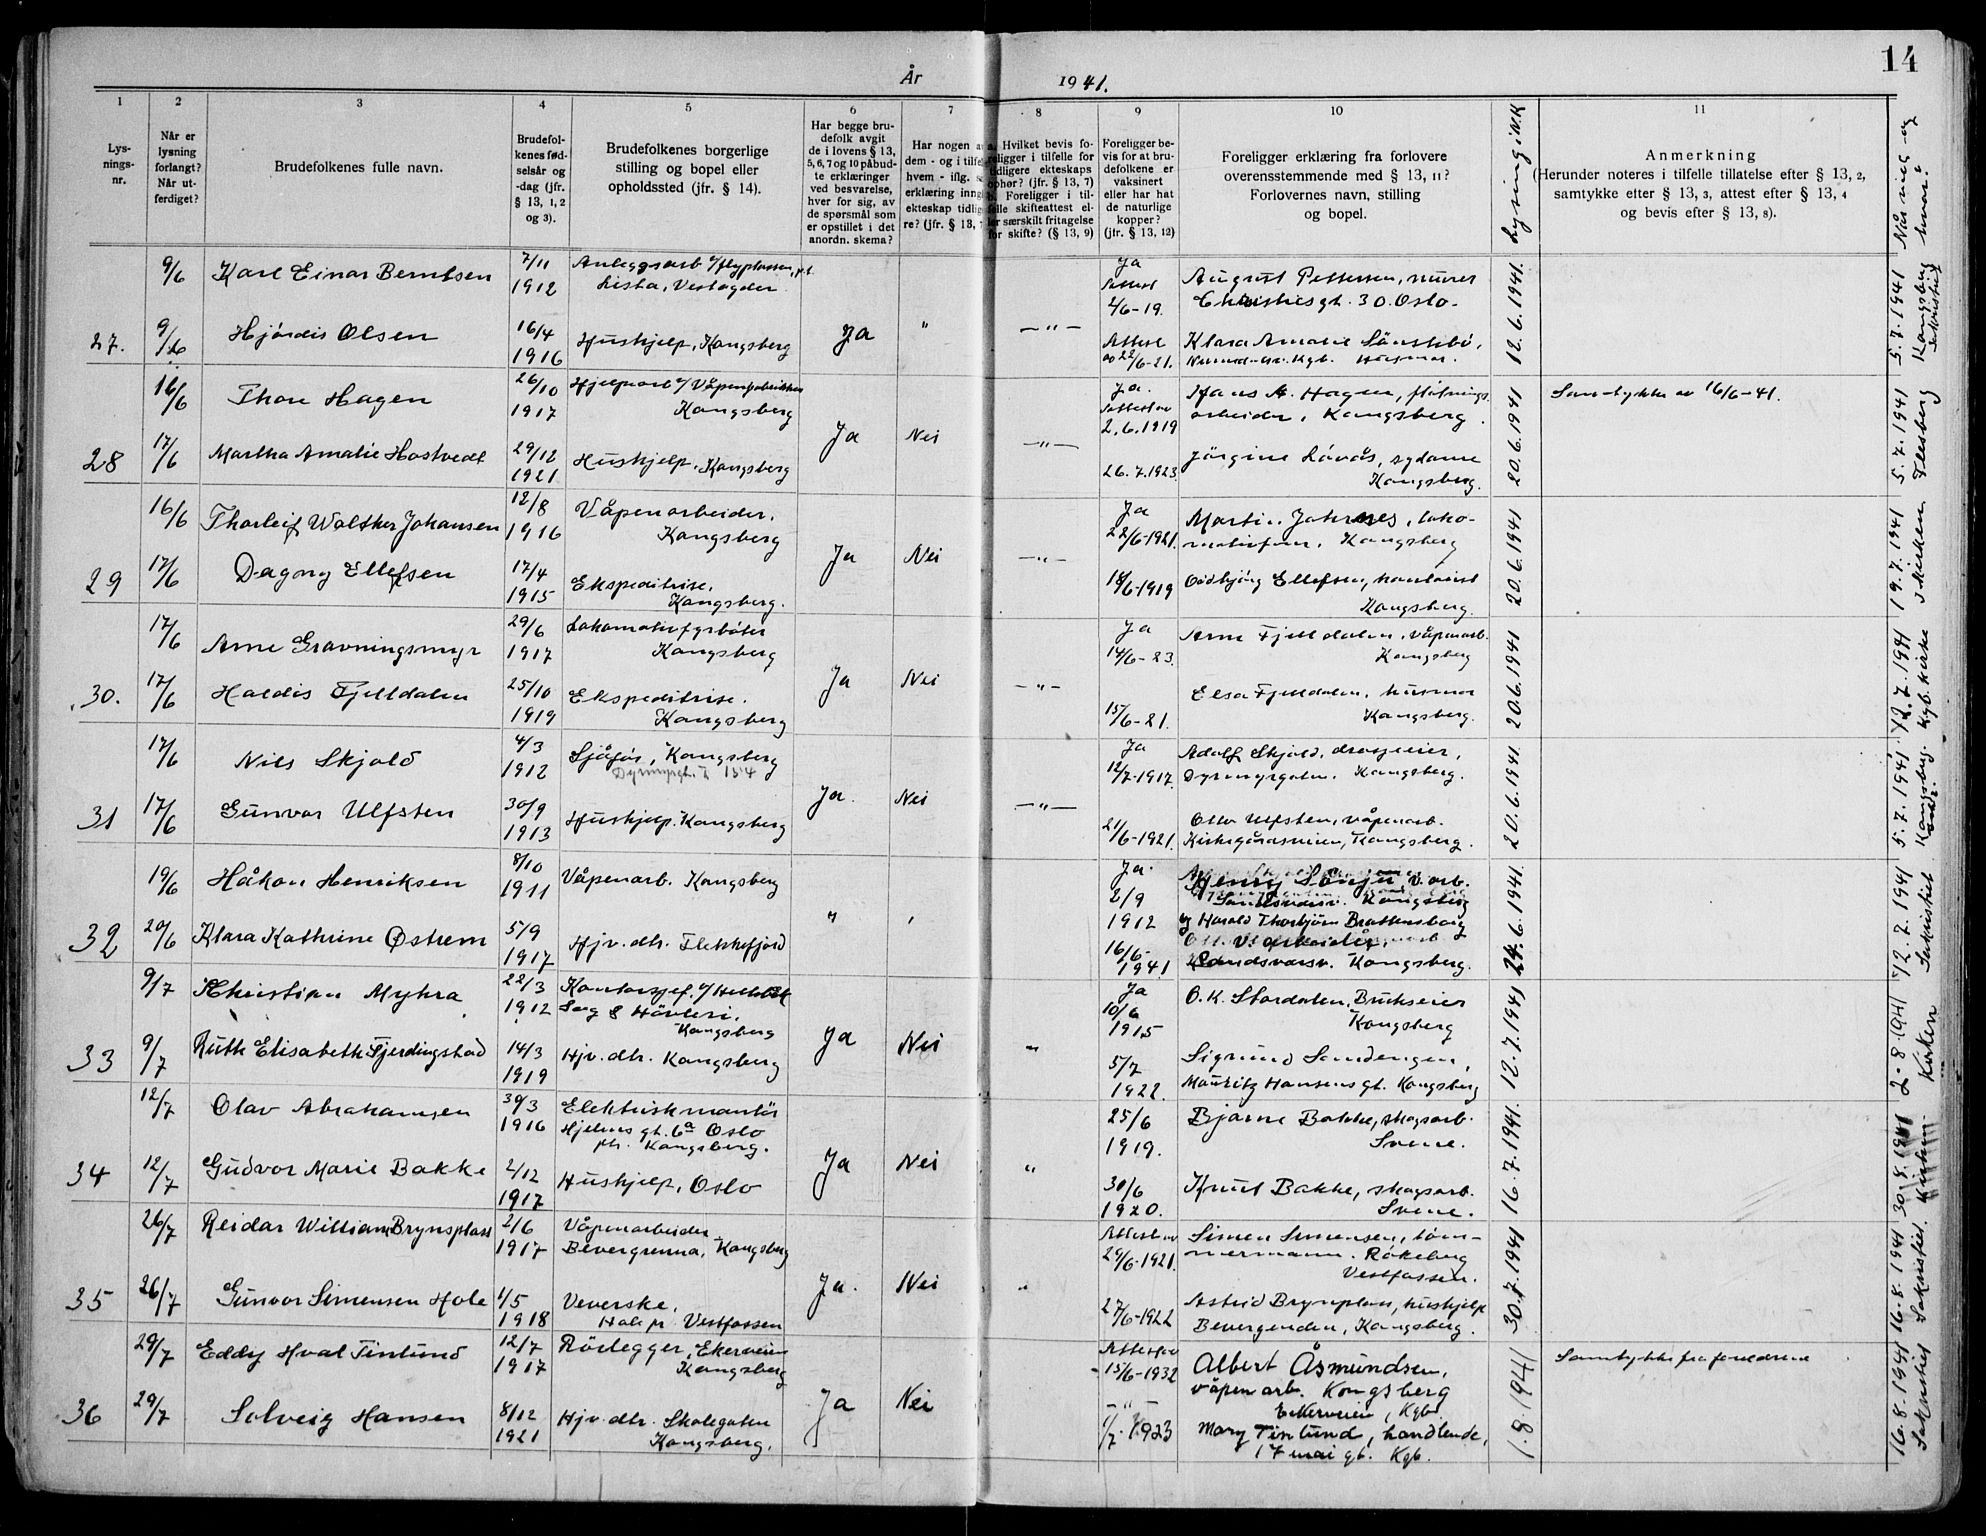 14
År 1941.
1 2 3 4 5 6 7 8 9 10 11
Lysningsnr.
Når er lysning forlangt? Når utferdiget?
Brudefolkenes fulle navn.
Brudefolkenes fødselsår og -dag (jfr. § 13, 1, 2 og 3).
Brudefolkenes borgerlige stilling og bopel eller opholdssted (jfr. § 14).
Har begge brudefolk avgit de i lovens § 13, 5, 6, 7 og 10 påbudte erklæringer ved besvarelse, hver for sig, av de spørsmål som er opstillet i det anordn. skema?
Har nogen a dem - og i tilfel hvem - iflg. s erklæring inng ekteskap tidlig re? (jfr. § 13,
Hvilket bevis foreligger i tilfelle for tidligere ekteskaps ophør? (jfr. § 13, 7) Foreligger i tilfelle skifteattest eller særskilt fritagelse for skifte? (§ 13, 9)
Foreligger bevis for at brudefolkene er vaksinert eller har hat de naturlige kopper? (jfr. § 13, 12)
Foreligger erklæring fra forlovere overensstemmende med § 13, 11? Forlovernes navn, stilling og bopel.
Lysning i N.K
Anmerkning
(Herunder noteres i tilfelle tillatelse efter § 13, 2, samtykke efter § 13, 3, attest efter § 13, 4 og bevis efter § 13, 8).
Når viet og hvor?
27.
9/6 Karl Einar Berntsen 7/11 1912 Anleggsarb v/flyplassen, p.t. Lista, Vestagder
Ja Attest 4/6-19. August Pettersen, murer Christiesgt. 30 Oslo.
9/6 Hjördis Olsen 16/4 1916 Hushjelp, Kongsberg Ja " —"—
Attest av 22/6-21. Klara Amalie Kgb. Husmor
12.6.1941. 5.7.1941 Kongsberg Sakristiet
28
16/6 Thore Hagen 26/10 1917 Hjelpearb v/Våpenfabrikken Kongsberg
Ja. Attest av 2.6.1919 Hans A. Hagen, fløtningsarbeider, Kongsberg
Samtykke av 16/6-41.
17/6 Martha Amalie Hostvedt 29/12 1921 Hushjelp, Kongsberg Ja Nei —"—
26.7.1923 Jörgine Lövås, sydame Kongsberg.
20.6.1941 5.7.1941 Flesberg
29
16/6 Thorleif Walther Johansen 12/8 1916 Våpenarbeider, Kongsberg
Ja 22/6-1921. Martin Johannes, Kongsberg
17/6 Dagny Ellefsen 17/4 1915 Ekspeditrise, Kongsberg. Ja Nei —"—
18/6-1919 Oddbjörg Ellefsen, Kongsberg.
20.6.1941 19.7.1941 i kirken
30.
17/6 Arne Gravningsmyr 29/6 1917 Lokomotivfyrböter Kongsberg
Ja 14/6-23. Arne Fjelldalen, våpenarb. Kongsberg
17/6 Haldis Fjelldalen 25/10 1919 Ekspeditrise. Kongsberg Ja Nei —"—
15/6-21. Elsa Fjelldalen, husmor Kongsberg.
20.6.1941 12.7.1941 Kgb. Kirke
31
17/6 Nils Skjold 4/3 1912 Sjåför, Kongsberg Dyrmyrgt. 154
Ja 12/7-1917. Adolf Skjold, drosjeeier, Dyrmyrgaten. Kongsberg.
17/6 Gunvor Ulfsten 30/9 1913 Hushjelp. Kongsberg Ja. Nei —"—
21/6-1921. Olav Ulfsten, våpenarb. Kirkegårdsveien, Kongsberg.
20.6.1941. 5.7.1941. Kongsberg
32
19/6 Håkon Henriksen 8/10 1911 Våpenarb. Kongsberg
Ja. 2/9 1912 Henry Sönju, v.arb. Kongsberg
20/6 Klara Kathrine Østrem 5/9 1917 Hjv. dtr. Flekkefjord " '
16/6-1941 og Harald Thorbjörn Brattensborg V. arbeider, Sandsværsv. Kongsberg.
24.6.1941. 12.7.1941 Sakristiet
33
9/7 Khristian Myhra 22/3 1912 Kontorsjef. v/ Sag & Hövleri. Kongsberg
Ja 10/6 1915 O. K. Stordalen, Brukseier Kongsberg
9/7 Ruth Elisabeth Fjerdingstad 14/3 1919 Hjv. dtr. Kongsberg Ja Nei "
5/7 1922. Sigmund Sandengen, Mauritz Hansens gt. Kongsberg
12.7.1941 2.8.1941 Kirken
34
12/7 Olav Abrahamsen 30/3 1916 Elektriskmontör Hjelms gt. 6a Oslo ptr. Kongsberg.
25/6 1919. Bjarne Bakke, skogsarb. Svene.
12/7 Gudvor Marie Bakke 2/12 1917 Hushjelp, Oslo Ja Nei "
30/6 1920. Knut Bakke, skogsarb. Svene.
16.7.1941. 30.8.1941 Kirken.
35
26/7 Reidar William Brynsplass 2/6 1917 Våpenarbeider Bevergrenna, Kongsberg
Attest av 29/6-1921. Simen Simensen, tömmermann. Rökeberg Vestfossen.
26/7 Gunvor Simensen Hole 1/5 1918 Veverske, Hole pr. Vestfossen Ja. Nei "
27/6-1922 Astrid Brynsplass, hushjelp Bevergrenden, Kongsberg.
30.7.1941 16.8.1941 Sakristiet.
36
29/7 Eddy Hval Tinlund 12/7 1917 Rörlegger, Ekerveien Kongsberg
Attest av 15/6-1932 Albert Åsmundsen, våpenarb. Kongsberg Ekerveien, Kgb.
Samtykke fra foreldrene
29/7 Solveig Hansen 8/12 1921 Hjv. dtr. Skolegaten Kongsberg. Ja Nei
—"— 1/7.1923 Mary Tinlund, handlende, 17 mai gt. Kgb.
1.8.1941 16.8.1941 Sakristiet